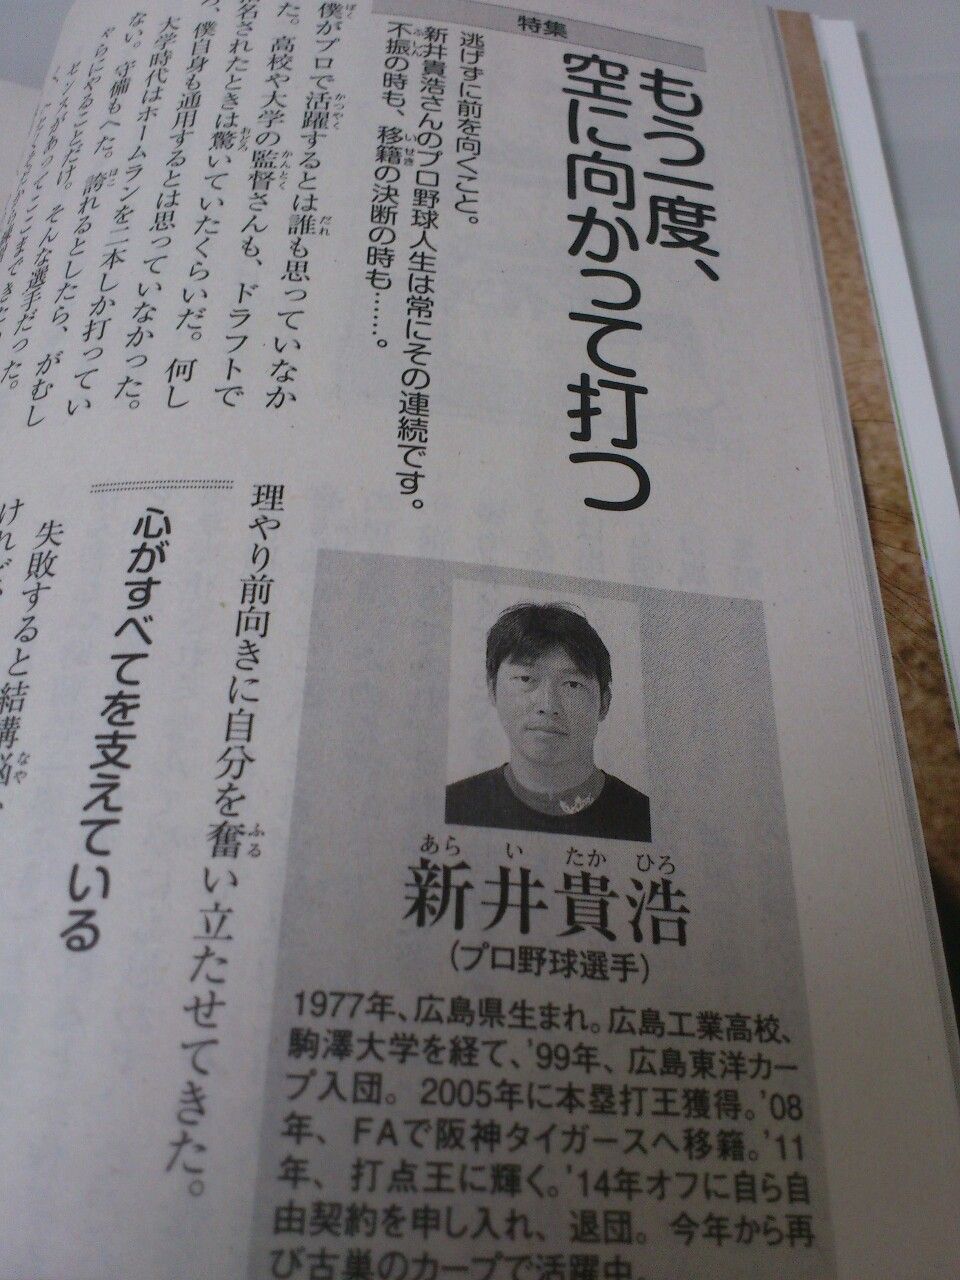 特集
もう一度、
空に向かって打つ
逃げずに前を向くこと。
新井貴浩さんのプロ野球人生は常にその連続です。
不振の時も、移籍の決断の時も……。
僕がプロで活躍するとは誰も思っていなか
た。高校や大学の監督さんも、ドラフトで
名されたときは驚いていたくらいだ。何し
、僕自身も通用するとは思っていなかった。
大学時代はホームランを二本しか打ってい
ない。守備もへた。誇れるとしたら、がむし
ゃらにやることだけ。そんな選手だった。
理やり前向きに自分を奮い立たせてきた。
心がすべてを支えている
失敗すると結構悩
けれど
新井貴浩
あらいたかひろ
(プロ野球選手)
1977年、広島県生まれ。広島工業高校、
駒澤大学を経て、'99年、広島東洋カー
プ入団。2005年に本塁打王獲得。'08
年、FAで阪神タイガースへ移籍。'11
年、打点王に輝く。'14年オフに自ら自
由契約を申し入れ、退団。今年から再
び古巣のカープで活躍中。